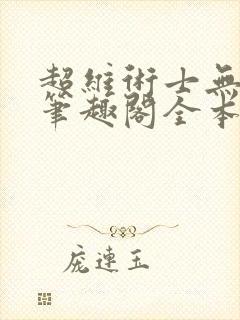 超維術士無
筆趣閣全本
庞連玉